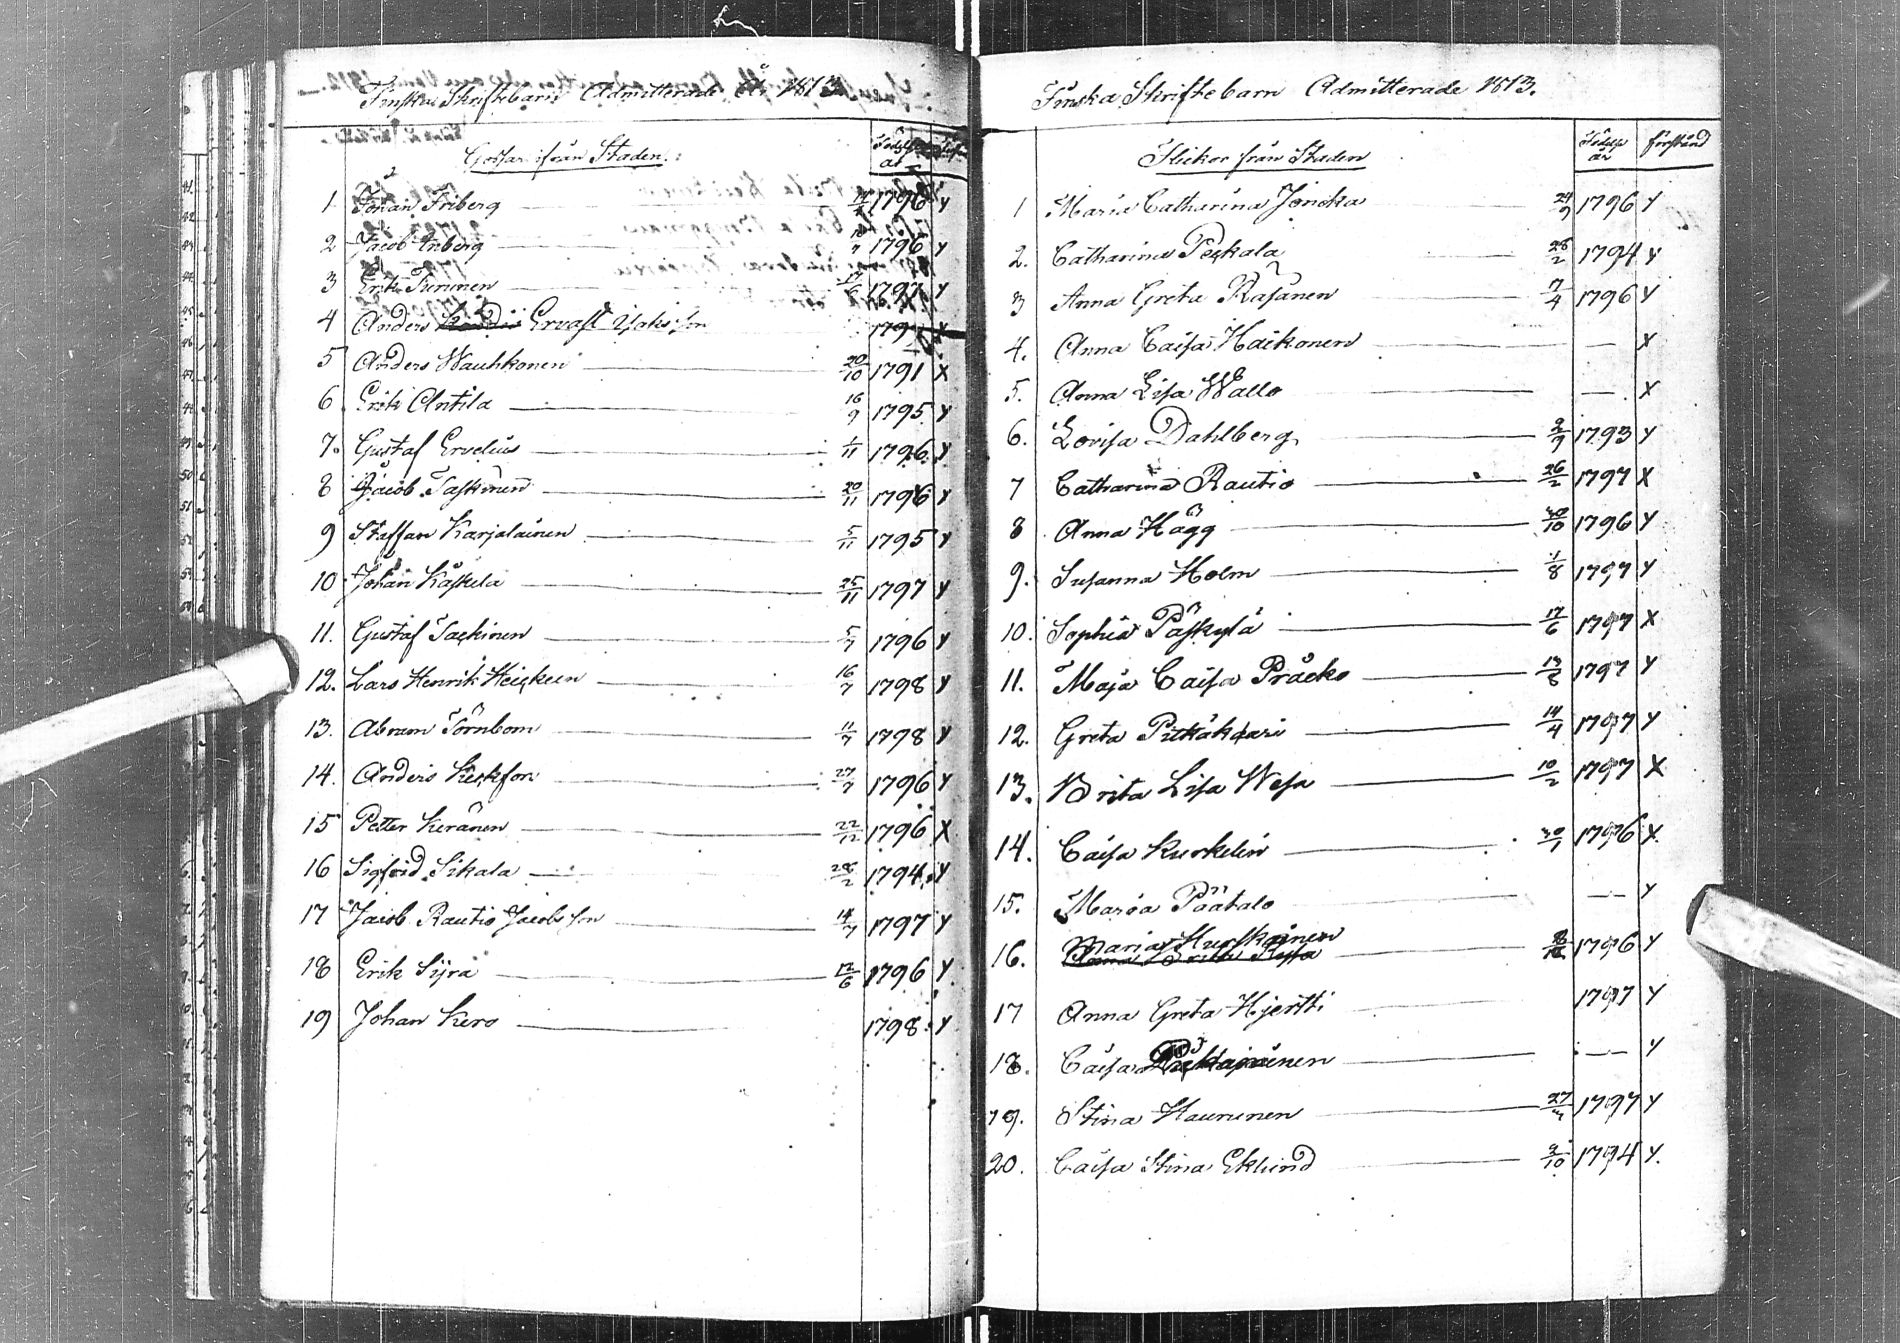 Finska Skriftebarn Admitterade År 1813
Gossar ifrån Staden
Födelse år
1 Johan Friberg 1796 Y
2 Jacob Enberg 1796 Y
3 Erik Turunen 17/6 1797 Y
4 Anders Ervast Isaksson X
5 Anders Wauhkonen 20/10 1791 X
6 Erik Antila 16/9 1795 Y
7. Gustaf Ervelius 1/11 1796 Y
8 Jacob Taskinen 20/11 1796 Y
9 Staffan Karjalainen 5/11 1795 Y
10 Johan Kastela 25/11 1797 Y
11. Gustaf Taskinen 5/7 1796 Y
12. Lars Henrik 16/7 1798 Y
13. Abram Törnbom 11/7 1798 Y
14. Anders 27/7 1796 Y
15 Petter Keränen 22/12 1796 X
16 Sigfrid Sikala 28/2 1794 Y
17 Jacob Rautio Jacobsson 14/7 1797 Y
18 Erik Syrä 12/6 1796 Y
19 Johan Kero 1798 Y
Finska Skriftebarn Admitterade 1813.
Flickor från Staden
Födelse år
förstånd
1 Maria Catharina 24/9 1796 Y
2. Catharina Peskala 28/2 1794 Y
3 Anna Greta Räsänen 7/4 1796 Y
4. Anna Caisa Haikonen — X
5. Anna Lisa Wallo — X
6. Lovisa Dahlberg 2/9 1793 Y
7 Catharina Rautio 26/2 1797 X
8 Anna Hägg 30/10 1796 Y
9. Susanna Holm 1/8 1797 Y
10. Sophia Päskylä 17/6 1797 X
11. Maja Caisa Pråcko 13/8 1797 Y
12. Greta Pitkäkari 14/4 1797 Y
13. Brita Lisa Wesa 10/2 1797 X
14. Caisa Kurkelin 30/1 1796 X
15. Maria Päätalo — Y
16. Maria Hurskainen 1796 Y
17 Anna Greta Hjertti 1797 Y
18. Caisa — Y
19. Stina Haurunen 1797 Y
20. Caisa Stina Eklund 2/10 1794 Y.